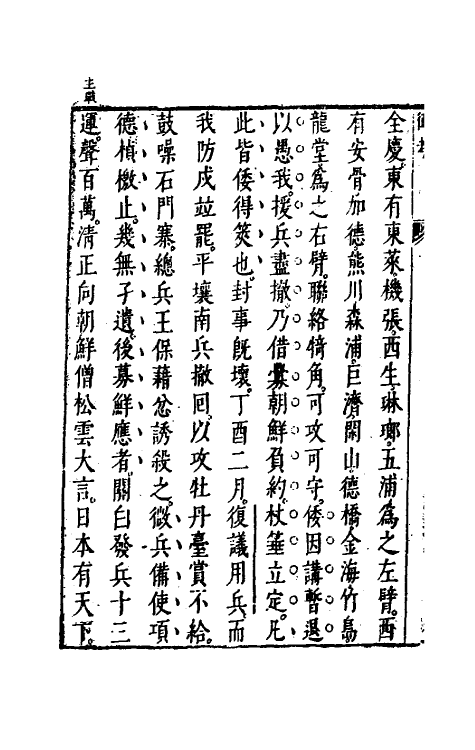 主戰
全慶東有東萊機張西生琳瑯五浦爲之左臂西
有安骨加德熊川森浦巨濟閑山德橋金海竹島
龍堂爲之右臂聯絡犄角可攻可守倭因講暫退
以愚我援兵盡撤乃借釁朝鮮負約杖箠立定凡
此皆倭得筴也封事旣壞丁酉二月復議用兵而
我防戍竝罷平壤南兵撤回以攻牡丹臺賞不給
鼓噪石門寨總兵王保藉忿誘殺之徵兵備使項
德楨檄止幾無孑遺後募鮮應者關白發兵十三
運聲百萬清正向朝鮮僧松雲大言日本有天下